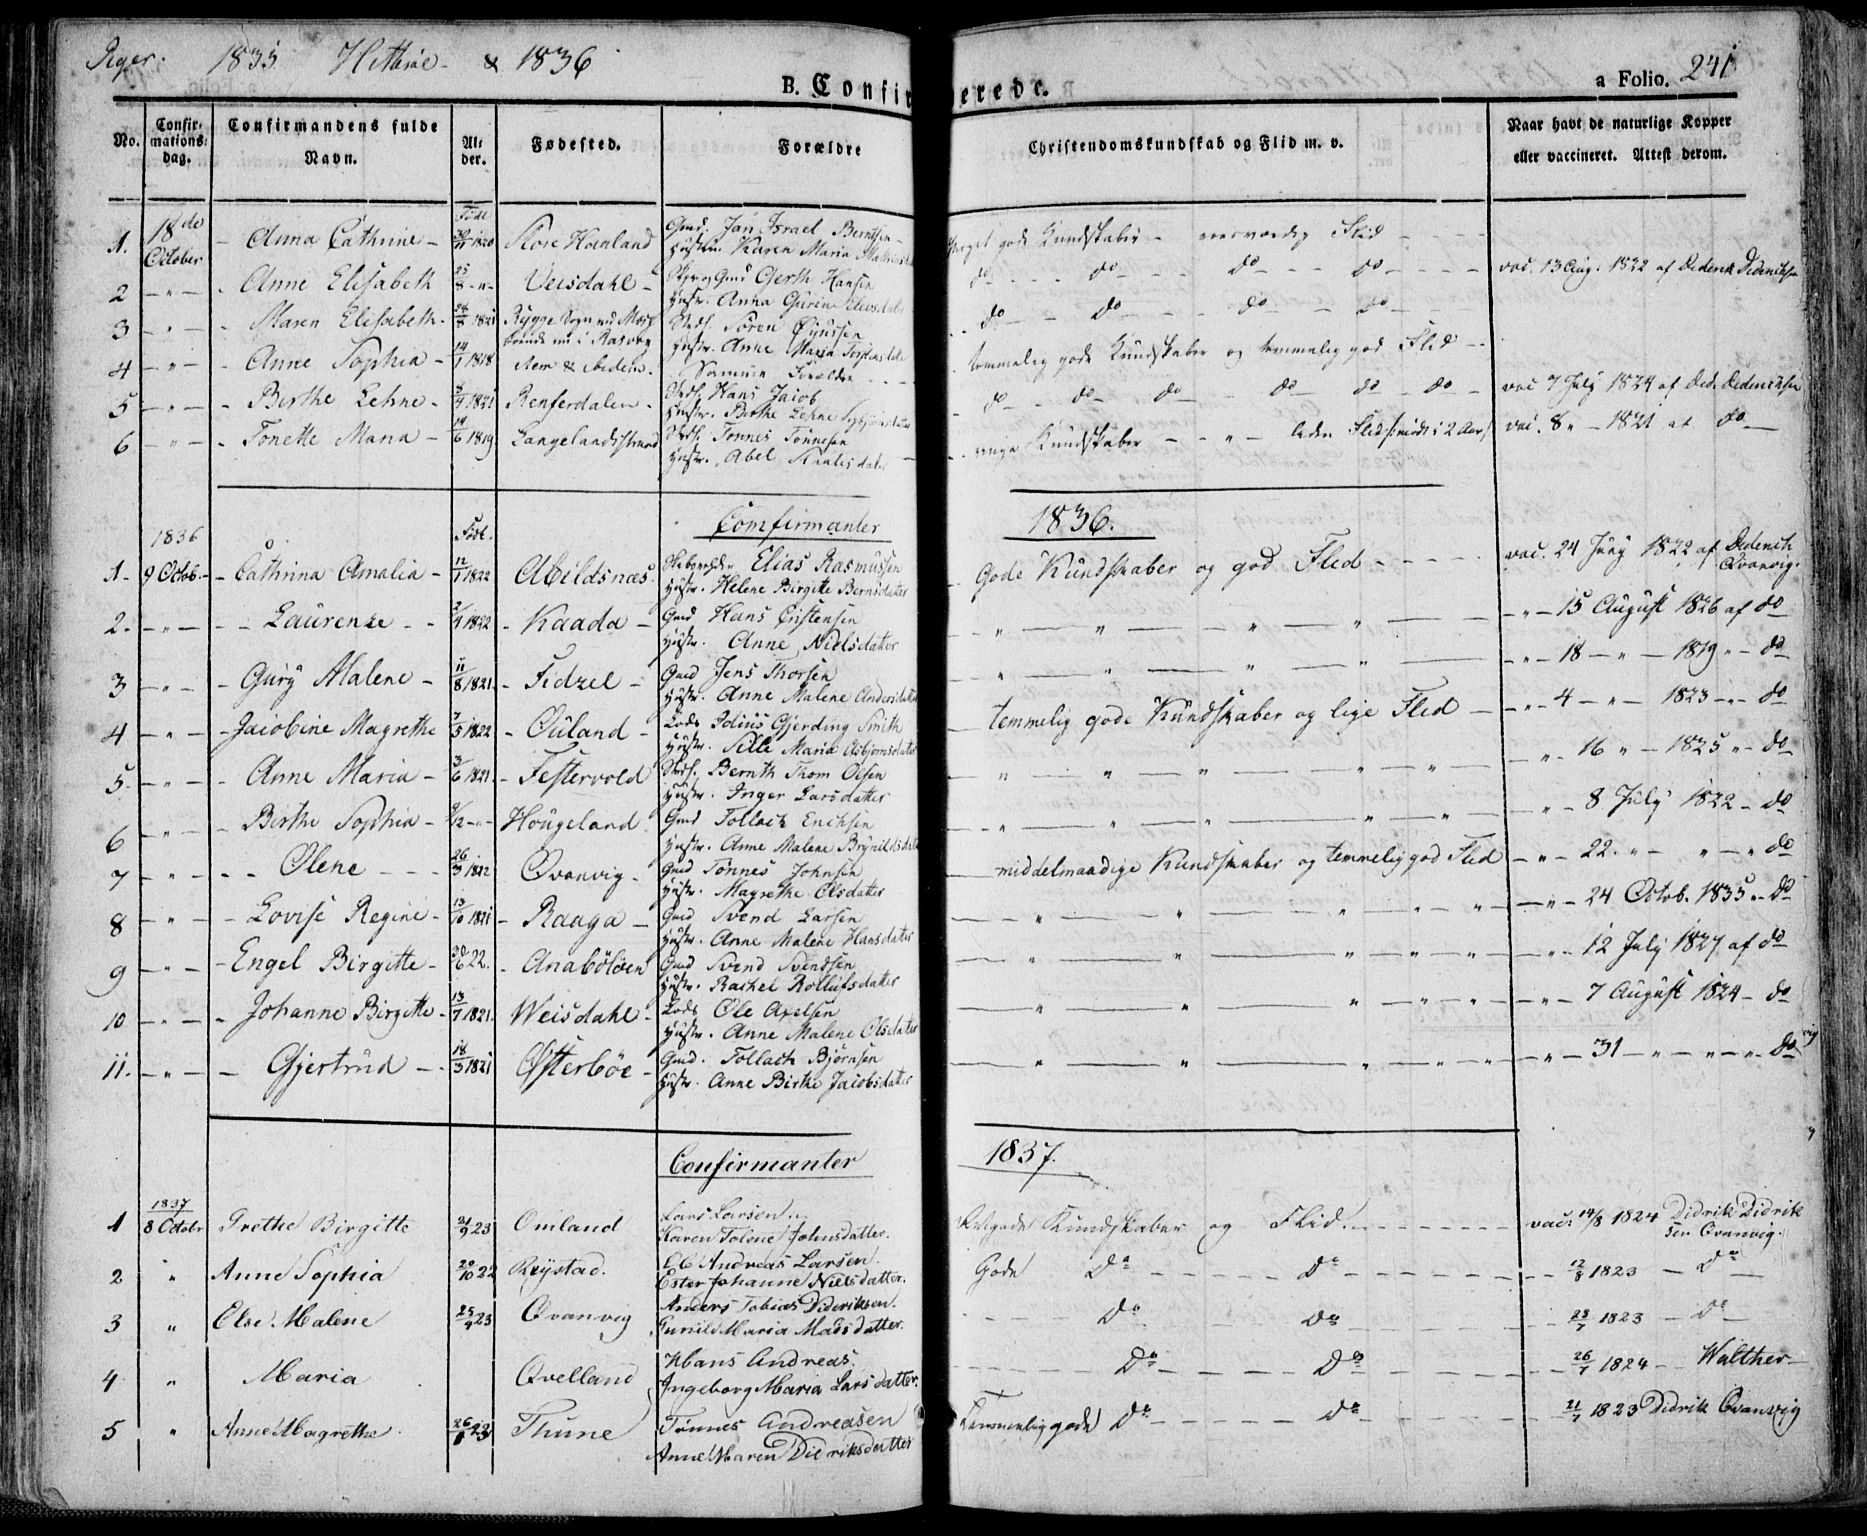 Piger. 1835 Hitterøe & 1836
B. Confirmerede. a Folio. 241
No. Confirmations-dag. Confirmandens fulde Navn. Alder. Fødested. Forældre Christendomskundskab og Flid m. v. Naar havt de naturlige Kopper eller vaccineret. Attest derom.
Født
1. 18de October Anna Cathrine Store Hanland Gmd. Jan Israel Berntsen Hustru Karen Maria Meget gode Kundskaber - Flid
2 - " - Anne Elisabeth 25/8 - " - Veisdahl Gmd Gerth Hansen Hustr. Anna Gurine Elevsdatter do do do do vac. 13 Aug. 1822 af Dederik Dederiksen
3 - " - Maren Elisabeth 24/8 1821 Rygge Sogn Søren Hustr. Anne Maria do do do do
4 - " - Anne Sophia 14/1 1818 Forældre temmelig gode Kundskaber og temmelig god Flid
5 - " - Berthe Lehne 3/4 1821 Renferdalen Hans Jacob Hustr. Birthe Lehne do do do do do do vac 7 July 1824 af Ded. Dederiksen
6 - " - Tonette Maria 14/6 1819 Langelandsstrand Tønnes Tønnesen Hustr. Abel Kundskaber - " - Flid i 2 Aar vac. 8 " 1821 af do
Comfirmanter 1836.
1836 Født.
1. 9 Octob. Cathrina Amalia 12/1 1822 Abildsnæs Elias Rasmussen Hustr. Helene Birgitte Berntsdatter Gode Kundskaber og god Flid vac. 24 Juny 1822 af Dederich Qvanvig.
2. - " - Laurenze 2/4 1822 Kaada Gmd Hans Cristensen Hustr. Anne Nielsdatter " " " " - " - 15 August 1826 af do
3 - " - Gury Malene 11/8 1821. Fidzel Gmd Jens Thorsen Hustr. Anne Malene Andersdatter " " " " - " - 18 - " - 1819 " - do
4 - " - Jacobine Magrethe 7/5 1822 Øuland Lods Gjerding Smith Hustr. Sille Maria Asbjørnsdatter temmelig gode Kundskaber og lige Flid - " - 4 - " - 1823 - " - do
5. - " - Anne Maria 3/6 1821. Festervold Bernth Thom Olsen Hustr. Inger Larsdatter " " " " " " 16 " - 1825 " - do
6 - " - Berthe Sophia /12 - " - Hougeland Gmd Tollack Erichsen Hustr. Anne Malene Brynildsdatter " " " " " - " - 8 July 1822 - do
7 - " - Olene 26/3 1822 Qvanvig Gmd Tønnes Johnsen Hustr. Magrethe Olsdatter middelmaadige Kundskaber og temmelig god Flid - " - 22. " - " - " do
8 - " - Lovise Regine 13/10 1821 Raaga Gmd Svend Larsen Hustr. Anne Malene Hansdatter " " " " " - " - 24 Octob. 1835 " - do
9 - " - Engel Birgitte 30/6 22. Anabøløen Gmd Svend Svendsen Hustr. Rachel Rollufsdatter " " " " " - " - 12 July 1827 af do
10 - " - Johanne Birgitte 13/7 1821. Weisdahl Lods Ole Axelsen Hustr. Anne Malene Olsdatter " " " " " - " - 7 August 1824 - do
11. - " - Gjertrud 18/3 1821 Østerbøe Gmd. Tollach Bjørnsen Hustr. Anne Birthe Jacobsdatter " " " " " - " - 31 - " - " - " - do
Confirmanter 1837.
1 1837 8 Octobr Grethe Birgitte 21/9 23 Omland Lars Larsen Karen Tolene Johnsdatter. Kundskaber og Flid. vac: 14/8 1824 Didrik Didriksen Qvanvig.
2 " Anne Sophia 20/10 22 Røystad. Ole Andreas Larsen. Ester Johanne Nielsdatter. Gode Do Do 12/8 1823 - Do
3 " Else Malene 25/4 23 Qvanvig Anders Tobias Dideriksen. Gunild Maria Madsdatter. Do Do 28/7 1823 - Do
4 " Maria Qvelland Hans Andreas. Ingeborg Maria Larsdatter. Do Do 26/7 1824 - Walther
5 " Anne Magrethe 26/8 23 Thune Tønnes Andreasen Anne Maren Didriksdatter Temmeligode Do Do 21/7 1823 Didrik Qvanvig